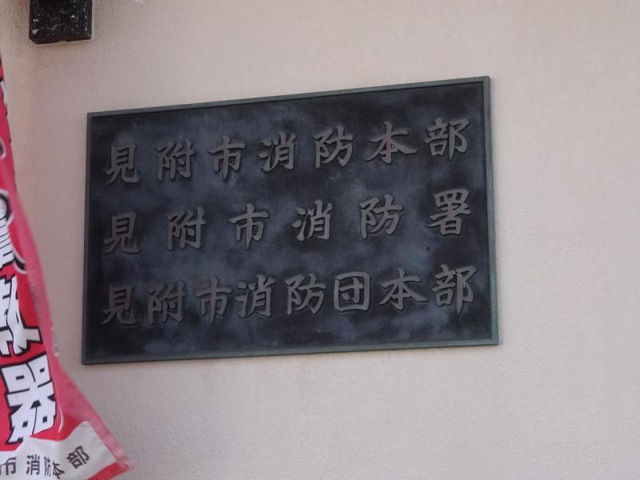 見附市消防本部
見附市消防署
見附市消防団本部
器
市消防本部